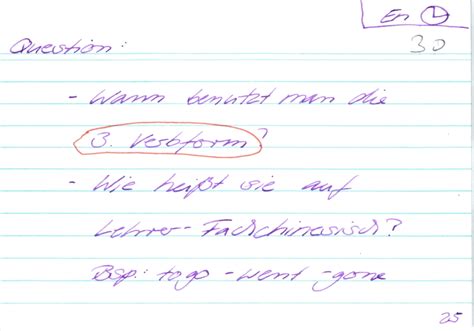 En
Question: 30
- Wann benutzt man die
3. Verbform?
- Wie heißt sie auf
Lehrer-Fachchinesisch?
Bsp: to go - went - gone
25